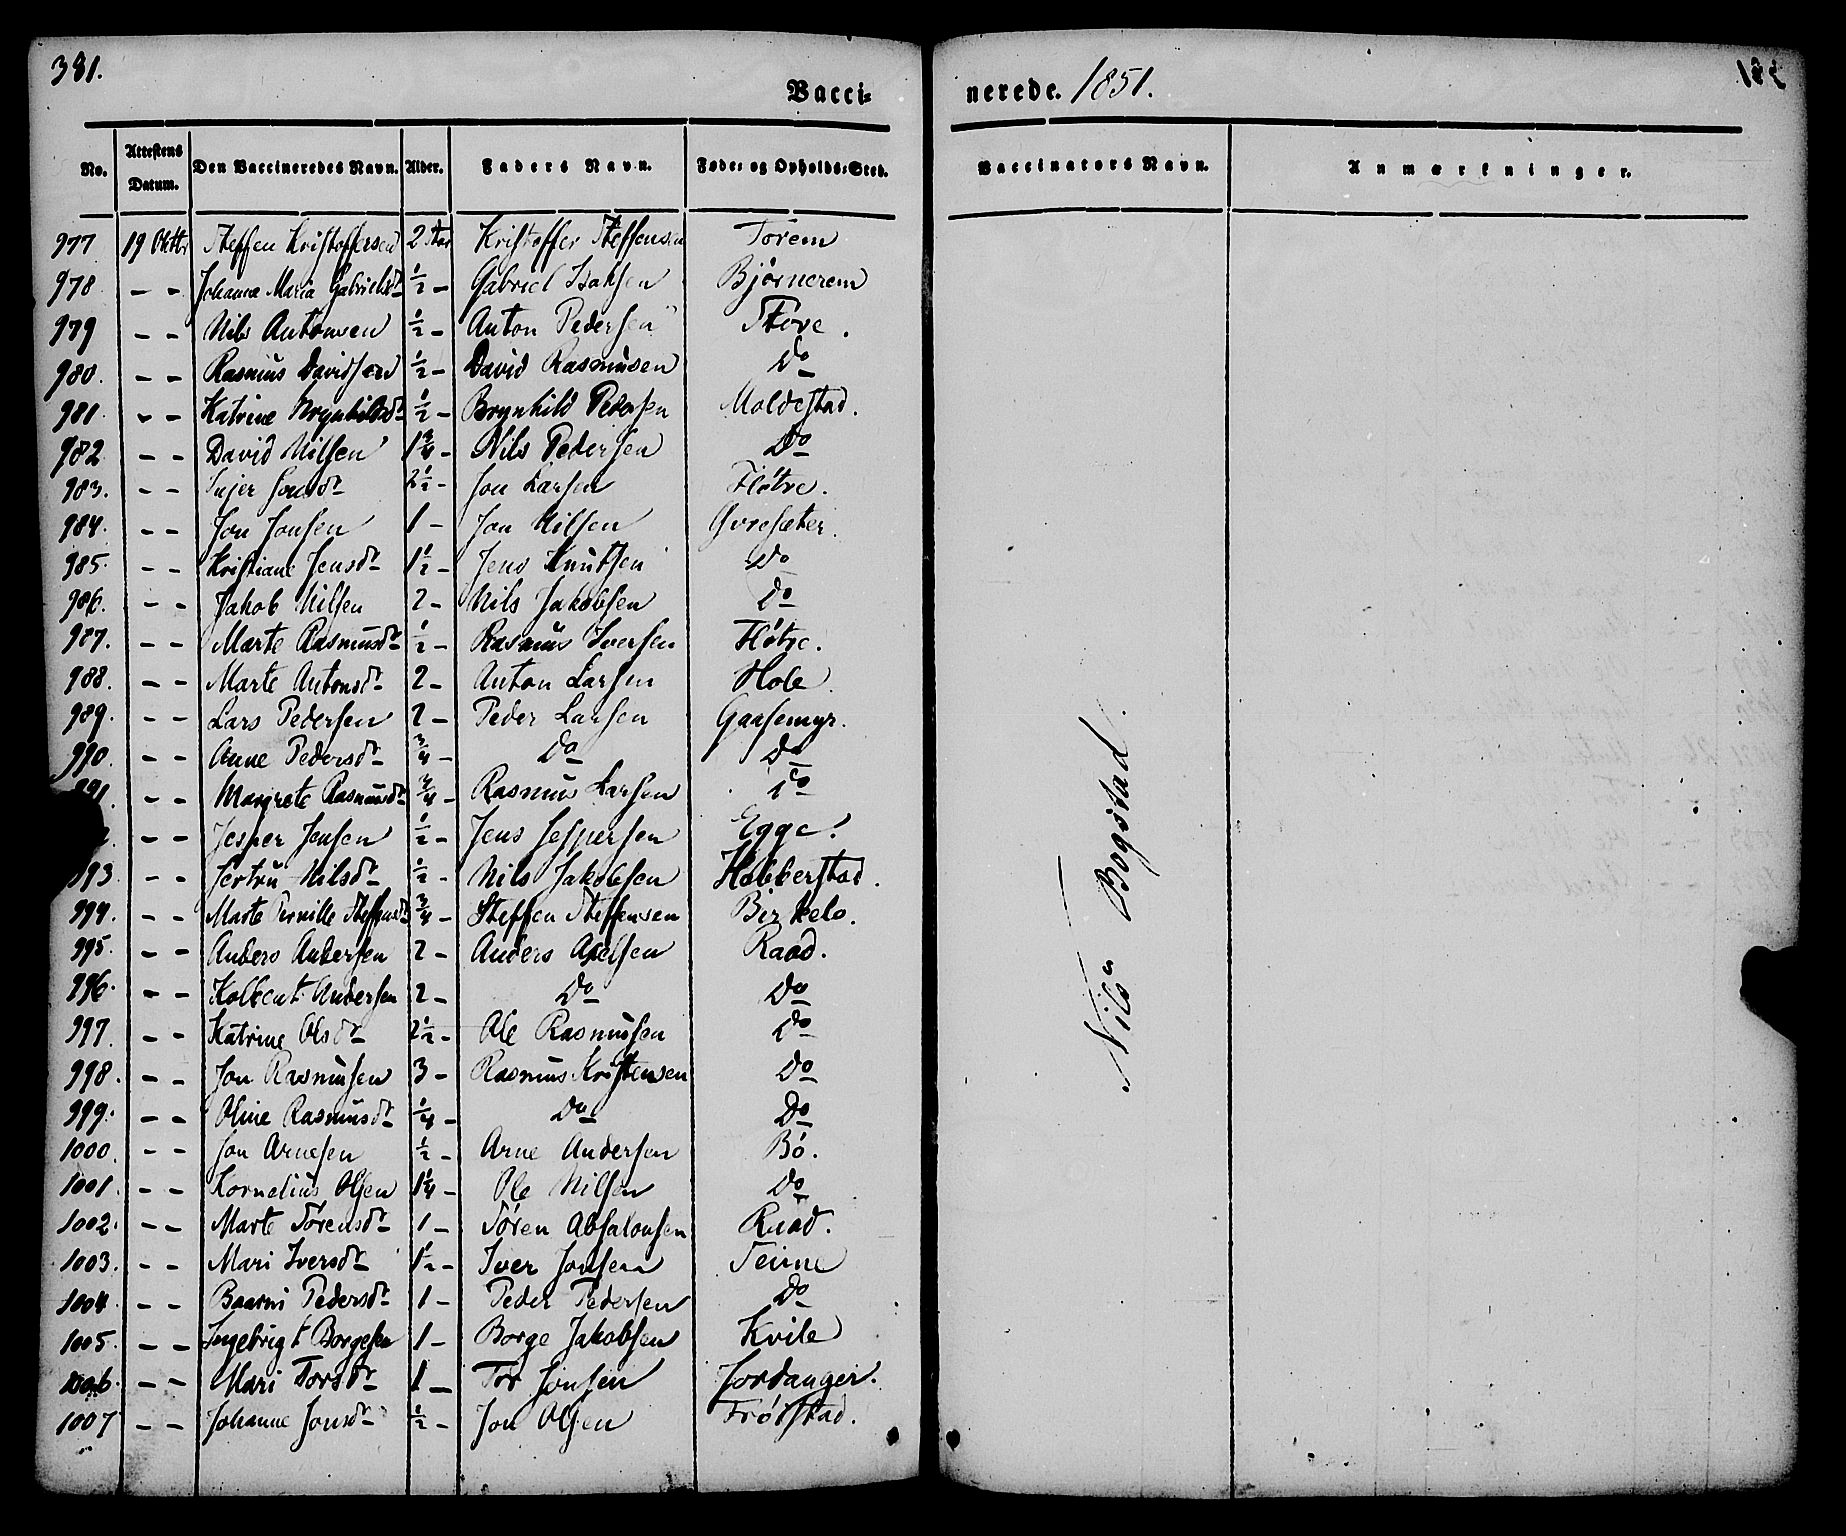 381.
Vacci-
nerede. 1851.
No. Attestens Datum. Den Vaccineredes Navn. Alder. Faders Navn. Føde- og Opholds-Sted. Vaccinators Navn. Anmærkninger.
977 19 Oktbr Steffen Kristoffersen 2 Aar Kristoffer Steffensen
978 - - Johanne Maria Gabrielsdr ½ - Gabriel Isaksen Bjørnerem
979 - - Nils Antonsen ½ - Anton Pedersen
980. - - Rasmus Davidsen ½ - David Rasmusen Do
981. - - Katrine Brynhildsdr ½ - Brynhild Pedersen Moldestad.
982. - - David Nilsen 1¾ - Nils Pedersen Do
983. - - Jonsdr 2½ - Jon Larsen Fløtre.
984. - - Jon Jonsen 1 - Jon Nilsen
985. - - Kristiane Jensdr 1½ - Jens Knutsen Do
986. - - Jakob Nilsen 2 - Nils Jakobsen Do
987. - - Marte Rasmusdr ½ - Rasmus Iversen Fløtre.
988. - - Marte Antonsdr 2 - Anton Larsen Hole
989. - - Lars Pedersen 2 - Peder Larsen Gaasemyr.
990. - - Anne Pedersdr ¾ - Do Do
991. - - Margrete Rasmusdr ¾ - Rasmus Larsen Do
- - Jesper Jensen ½ - Jens Jespersen Egge.
993. - - Jertru Nilsdr ½ - Nils Jakobsen
994. - - Marte Pernille Steffensdr ¾ - Steffen Steffensen Birkelo.
995. - - Anders Andersen 2 - Anders Axelsen Raad.
996. - - Kolbent Andersen 2 - Do Do
997. - - Katrine Olsdr 2½ - Ole Rasmusen Do
998. - - Jon Rasmusen 3 - Rasmus Kristensen Do
999. - - Oline Rasmusdr ¼ - Do Do
1000. - - Jon Arnesen ½ - Arne Andersen Bø.
1001. - - Kornelius Olsen 1¼ - Ole Nilsen Do
1002. - - Marte Sørensdr 1 - Søren Absalonsen
1003. - - Mari Iversdr 1½ - Iver Jonsen
1004. - - Baarni Pedersdr 1 - Peder Pedersen Do
1005. - - Ingebrigt Borgesen 1 - Borge Jakobsen Kvile
1006. - - Mari Torsdr 1 - Tor Jonsen
1007 - - Johanne Jonsdr ½ - Jon Olsen
Nils Bogstad.